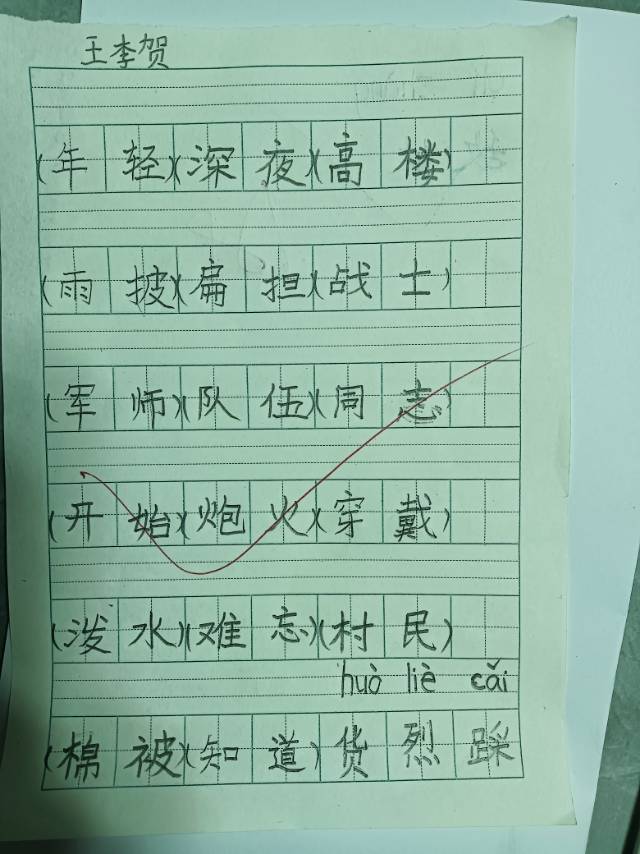 王李贺
(年轻)(深夜)(高楼)
(雨披)(扁担)(战士)
(军师)(队伍)(同志)
(开始)(炮火)(穿戴)
(泼水)(难忘)(村民)
huò liè cǎi
(棉被)(知道)货烈踩